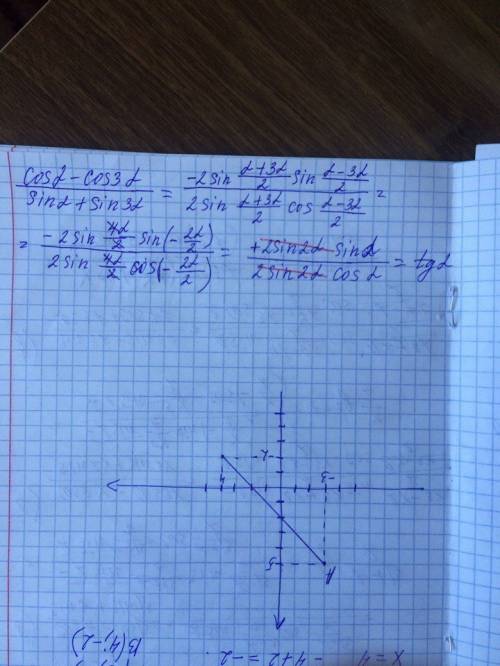 (cosα - cos3α)/(sinα + sin3α) = (-2sin (α+3α)/2 sin (α-3α)/2)/(2sin (α+3α)/2 cos (α-3α)/2) =
= (-2sin 4α/2 sin(-2α/2))/(2sin 4α/2 cos(-2α/2)) = (+2sin2α sinα)/(2sin2α cosα) = tgα
-2
4
-3
-5
A
B(4;-2)
x=4 -4+2=-2.